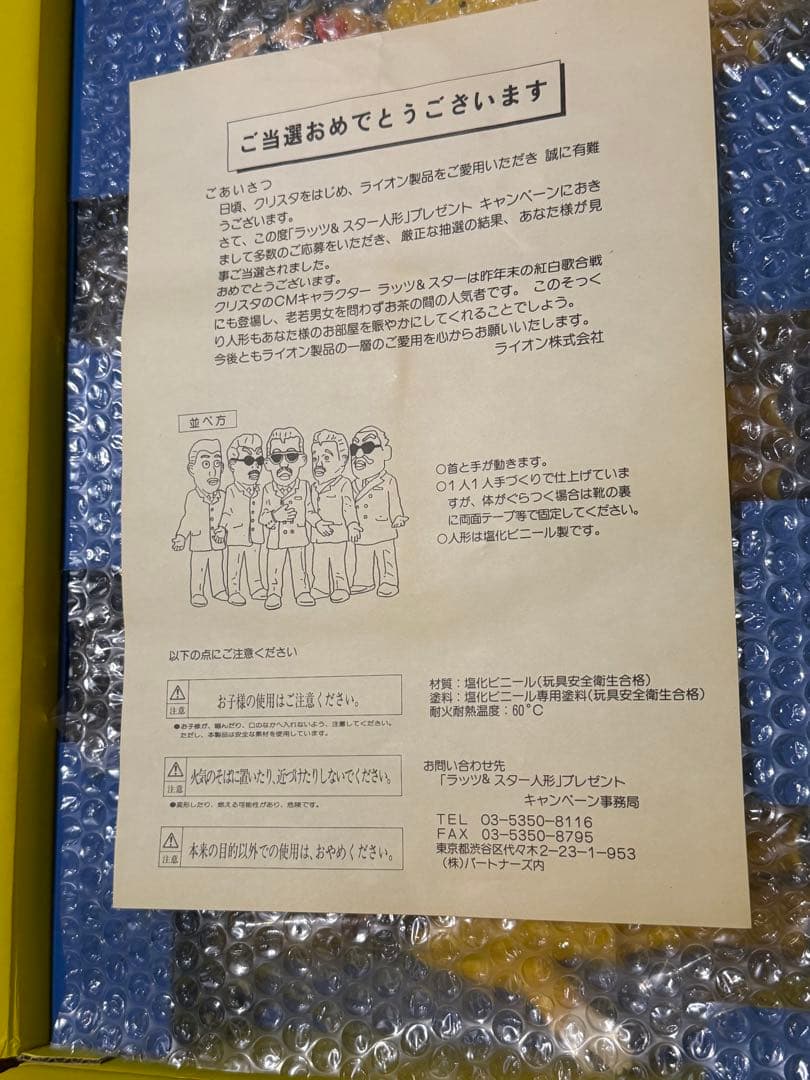 ご当選おめでとうございます
ごあいさつ
日頃、クリスタをはじめ、ライオン製品をご愛用いただき 誠に有難
うございます。
さて、この度「ラッツ&スター人形」プレゼント キャンペーンにおき
まして多数のご応募をいただき、厳正な抽選の結果、あなた様が見
事ご当選されました。
おめでとうございます。
クリスタのCMキャラクター ラッツ&スターは昨年末の紅白歌合戦
にも登場し、老若男女を問わずお茶の間の人気者です。 このそっく
り人形もあなた様のお部屋を賑やかにしてくれることでしょう。
今後ともライオン製品の一層のご愛用を心からお願いいたします。
ライオン株式会社
並べ方
○首と手が動きます。
○1人1人手づくりで仕上げていま
すが、体がぐらつく場合は靴の裏
に両面テープ等で固定してください。
○人形は塩化ビニール製です。
以下の点にご注意ください
注意 お子様の使用はご注意ください。
●お子様が、噛んだり、口のなかへ入れないよう、注意してください。
ただし、本製品は安全な素材を使用しています。
注意 火気のそばに置いたり、近づけたりしないでください。
●変形したり、燃える可能性があり、危険です。
注意 本来の目的以外での使用は、おやめください。
材質：塩化ビニール(玩具安全衛生合格)
塗料：塩化ビニール専用塗料(玩具安全衛生合格)
耐火耐熱温度：60°C
お問い合わせ先
「ラッツ&スター人形」プレゼント
キャンペーン事務局
TEL 03-5350-8116
FAX 03-5350-8795
東京都渋谷区代々木2-23-1-953
(株)パートナーズ内